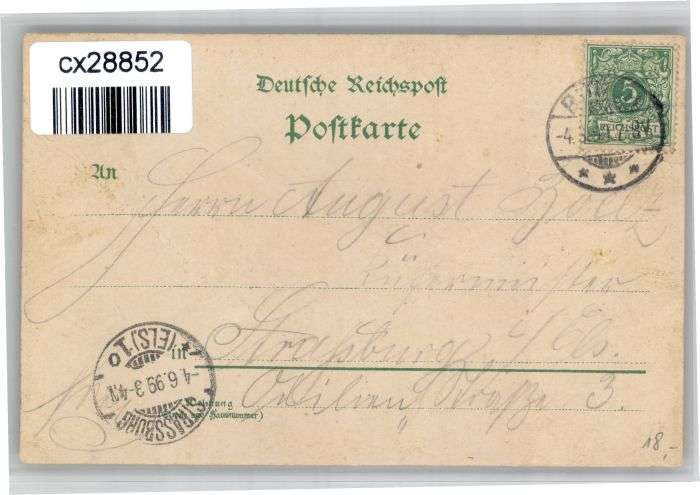 cx28852
Deutsche Reichspost
Postkarte
5
An
Herrn August
Küfermeister
in Strassburg i/Els.
Odilien Straße 3.
Wohnung
(Straße und Hausnummer)
STRASSBURG
*(ELS)1 o
4.6.99.3-4N
18,-